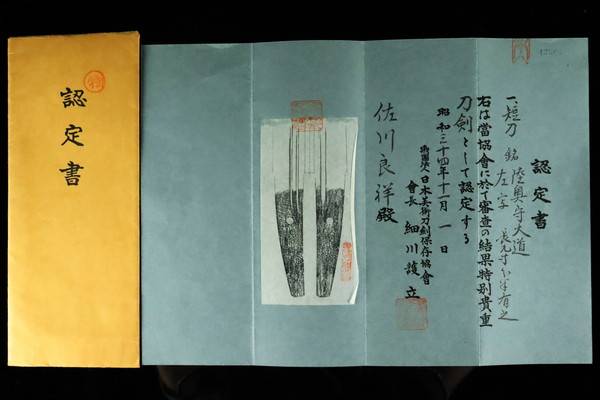 認定書
特
認定書
一、短刀 銘 陸奥守大道
左字 長九寸分半有之
右は當協會に於て審査の結果特別貴重
刀劍として認定する
昭和三十四年十一月一日
財團法人日本美術刀劍保存協會
會長 細川護立
佐川良祥殿